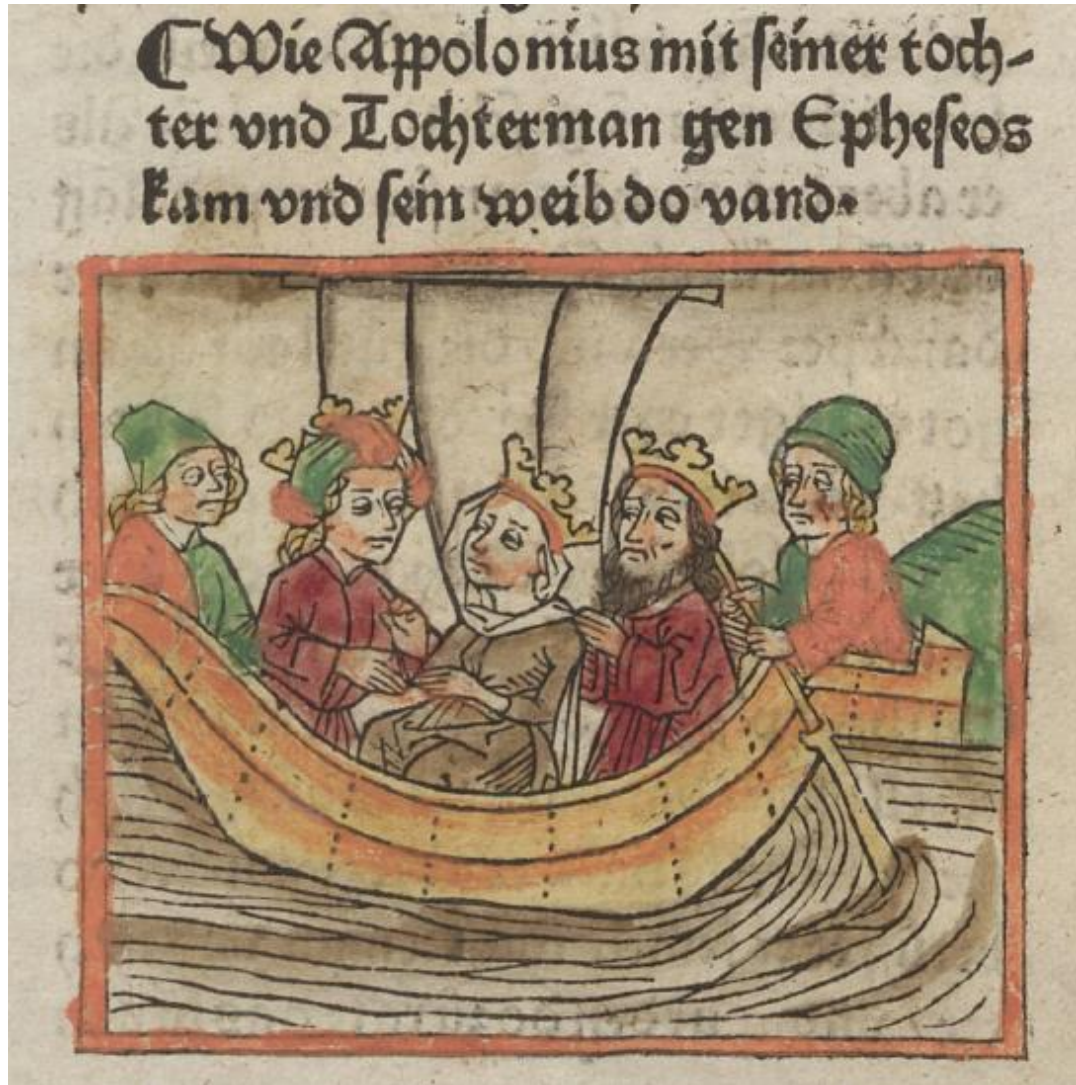 ¶ Wie Appolonius mit seiner toch-
ter vnd Tochterman gen Epheseos
kam vnd sein weib do vand.